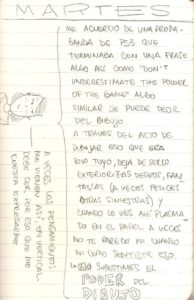 MARTES
ME ACUERDO DE UNA PROPA-
GANDA DE PS3 QUE
TERMINABA CON UNA FRASE
ALGO ASI COMO "DON'T
UNDERESTIMATE THE POWER
OF THE GAME" ALGO
SIMILAR SE PUEDE DECIR
DEL DIBUJO
A TRAVES DEL ACTO DE
DIBUJAR ESO QUE ERA
TUYO, DEJA DE SERLO
EXTERIORIZAS DESEOS, FAN-
TASIAS (A VECES FELICES
OTRAS SINIESTRAS) Y
CUANDO LO VES AHI PLASMA
DO EN EL PAPEL A VECES
NO TE PARECIO NI CUANDO
NI COMO SENTISTE
NO SUBESTIMES EL
PODER DEL
DIBUJO
A VECES LOS PENSAMIENTOS
ME VIENEN ASI, EN VERTICAL
DEBE SER POR ESO QUE ME
CUESTA EXPRESARLOS